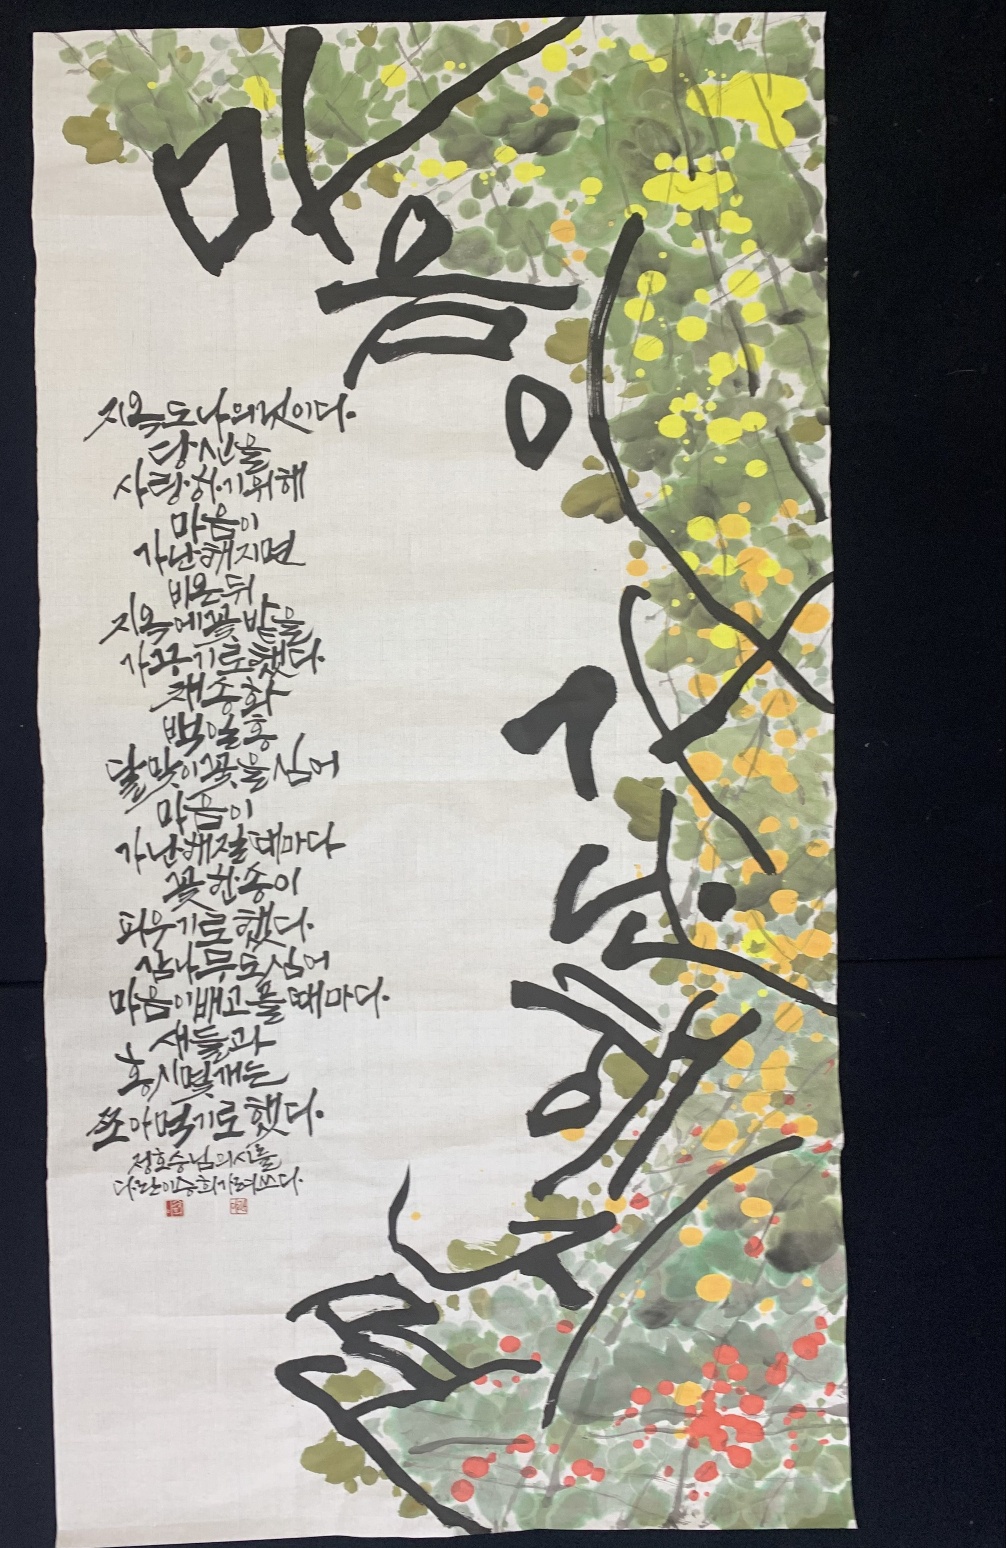 마음이
가난해지면
지옥도 나의 것이다.
당신을
사랑하기 위해
마음이
가난해지면
비온 뒤
지옥에 꽃밭을
가꾸기로 했다.
채송화
백일홍
달맞이꽃을 심어
마음이
가난해질 때마다
꽃 한 송이
피우기로 했다.
감나무도 심어
마음이 배고플 때마다.
새들과
홍시 몇 개는
쪼아 먹기로 했다.
정호승님의 시를
이승희가